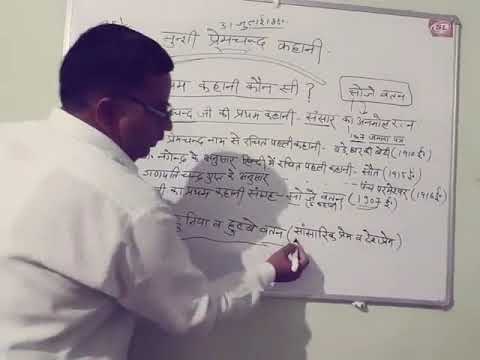 मुन्शी प्रेमचन्द कहानी
प्रथम कहानी कौन सी?
सोजे वतन
चन्द जी की प्रथम कहानी - संसार का अनमोल रत्न
1907 जमाना पत्र
प्रेमचन्द नाम से रचित पहली कहानी - बड़े घर की बेटी (1910 ई॰)
नगेन्द्र के अनुसार हिन्दी में रचित पहली कहानी - सौत (1915 ई॰)
गणपति चन्द्र गुप्त के अनुसार - पंच परमेश्वर (1916 ई॰)
जी का प्रथम कहानी संग्रह - सोजे वतन (1907 ई॰)
दुनिया व हुब्बे वतन (सांसारिक प्रेम व देशप्रेम)
SL